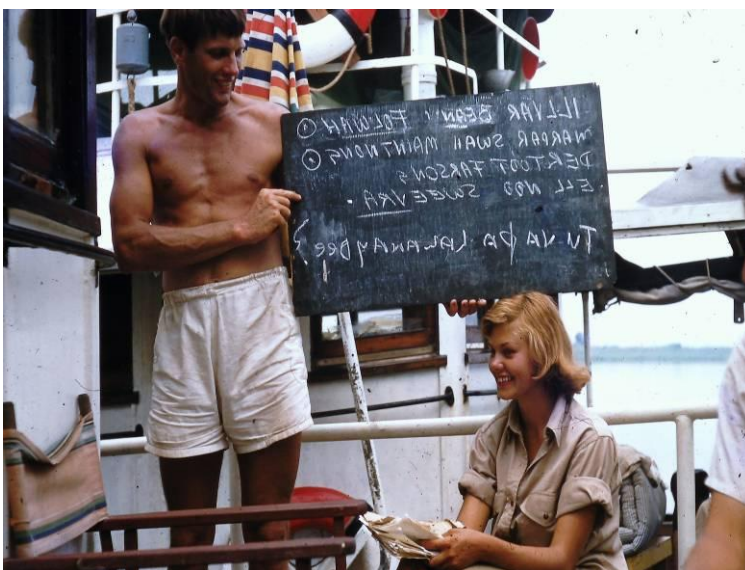 ILLVAR BEAN! FOLWAH ①
MARPAR SWAH MAINTNONG
DERTOOT FARSONG
ELL NOO SWEEVRA.
TU VA PA LAWANAYDEE ?